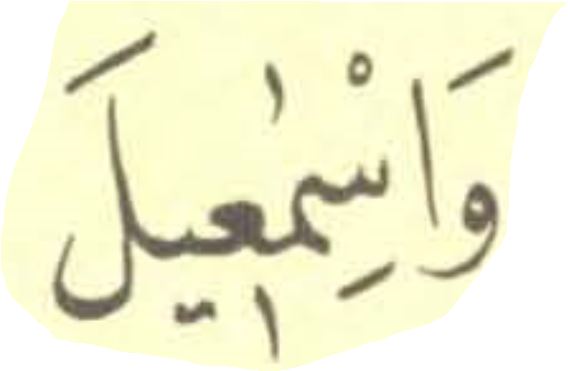 وَاِسْمٰعٖيلَ